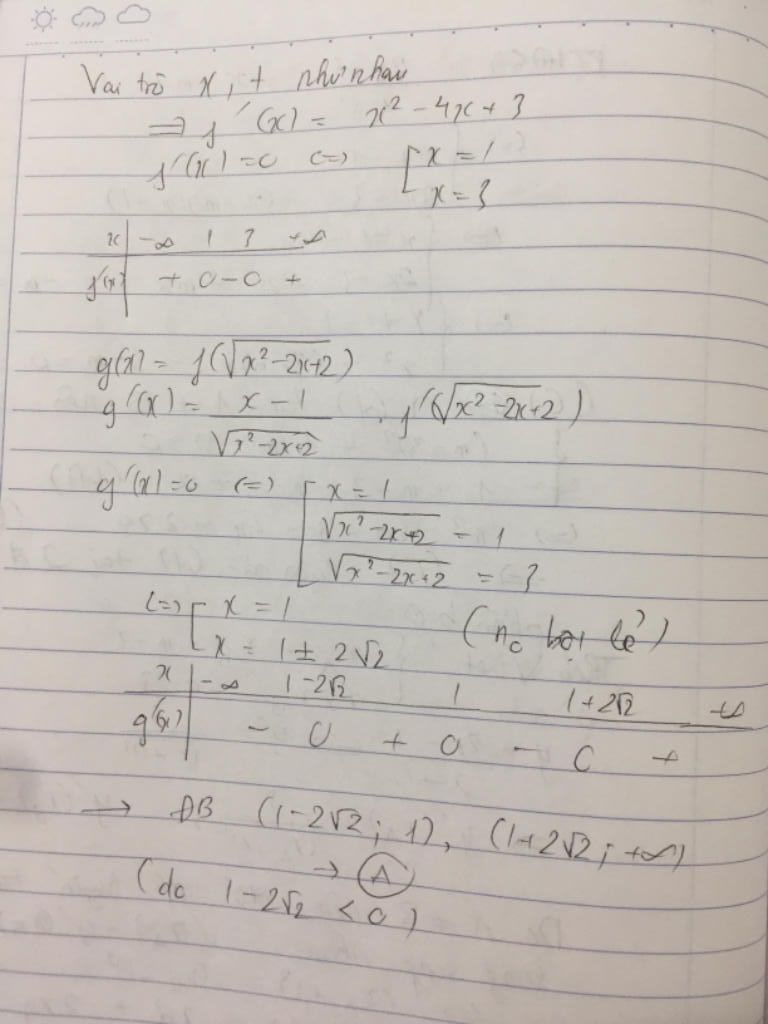 Vai trò x, t như nhau
⇒ f'(x) = x² - 4x + 3
f'(x) = 0 (=) [ x = 1
x = 3
x | -∞ 1 3 +∞
f'(x) | + 0 - 0 +
g(x) = f(√(x²-2x+2))
g'(x) = (x - 1)/√(x²-2x+2) . f'(√(x²-2x+2))
g'(x) = 0 (=) [ x = 1
√(x²-2x+2) = 1
√(x²-2x+2) = 3
(=) [ x = 1
x = 1 ± 2√2 (n₀ bội lẻ)
x | -∞ 1-2√2 1 1+2√2 +∞
g'(x) | - 0 + 0 - 0 +
→ ĐB (1-2√2; 1), (1+2√2; +∞)
→ A
(do 1-2√2 < 0)